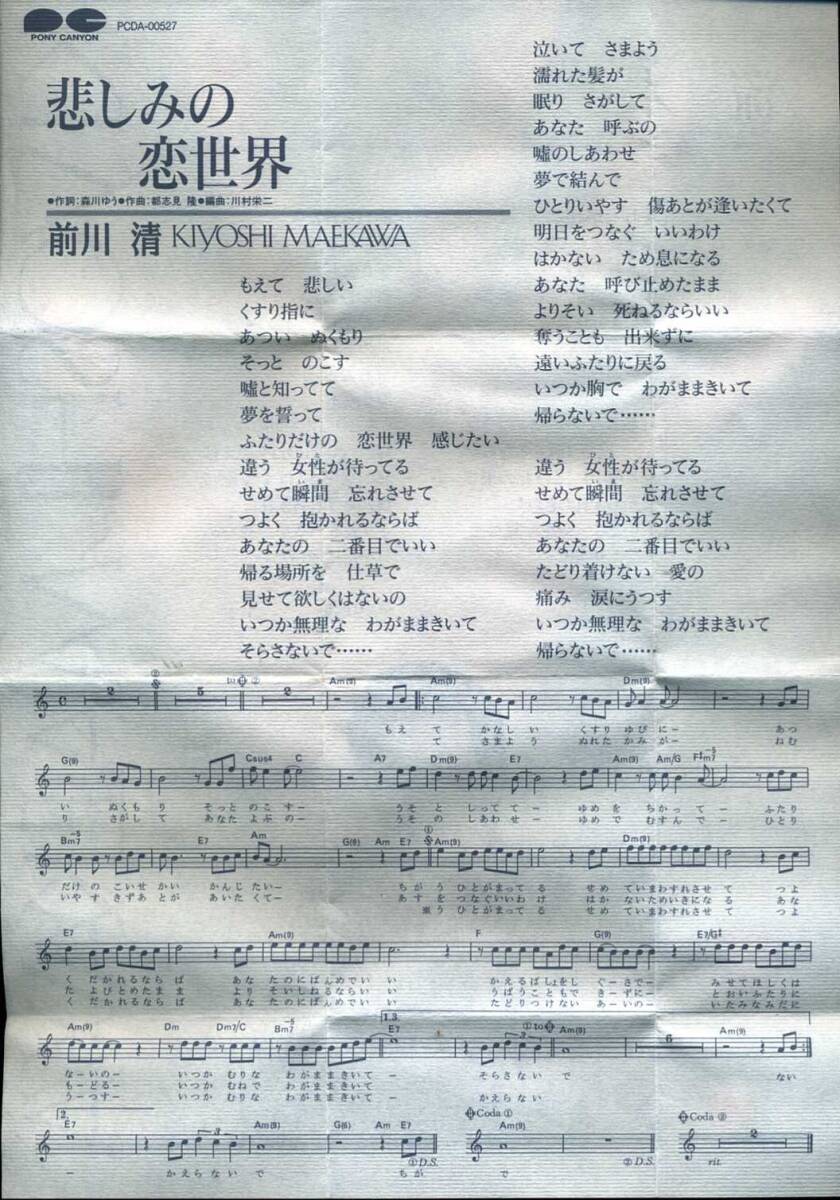 PONY CANYON
PCDA-00527
悲しみの
恋世界
●作詞:森川ゆう●作曲:都志見 隆●編曲:川村栄二
前川 清 KIYOSHI MAEKAWA
もえて 悲しい
くすり指に
あつい ぬくもり
そっと のこす
嘘と知ってて
夢を誓って
ふたりだけの 恋世界 感じたい
違う 女性が待ってる
せめて瞬間 忘れさせて
つよく 抱かれるならば
あなたの 二番目でいい
帰る場所を 仕草で
見せて欲しくはないの
いつか無理な わがままきいて
そらさないで……
泣いて さまよう
濡れた髪が
眠り さがして
あなた 呼ぶの
嘘のしあわせ
夢で結んで
ひとりいやす 傷あとが逢いたくて
明日をつなぐ いいわけ
はかない ため息になる
あなた 呼び止めたまま
よりそい 死ねるならいい
奪うことも 出来ずに
遠いふたりに戻る
いつか胸で わがままきいて
帰らないで……
違う 女性が待ってる
せめて瞬間 忘れさせて
つよく 抱かれるならば
あなたの 二番目でいい
たどり着けない 愛の
痛み 涙にうつす
いつか無理な わがままきいて
帰らないで……
Am(9) Am(9) Dm(9)
もえ て かなし い くすり ゆびにー あつ
て さまよ う ぬれた かみがー ねむ
G(9) Csus4 C A7 Dm(9) E7 Am(9) Am/G F♯m7-5
い ぬくも り そっと のこすー うそ と しっててー ゆめを ちかってー ふたり
り さがし て あなた よぶのー うその しあわせー ゆめで むすんでー ひとり
Bm7-5 E7 Am G(6) Am E7 Am(9) Dm(9)
だけの こいせかい かんじ たいー ちがう ひとがまって る せめ ていまわすれさせて つよ
いやす きずあとが あいた くてー あすを つなぐいいわ け はか ないためいきになる あな
※う ひとがまって る せめ ていまわすれさせて つよ
E7 Am(9) F G(9) E7/G♯
く だかれるなら ば あな たのにばんめでい い かえるばしょをし ぐーさでー みせてほしくは
た よびとめたま ま より そいしねるならい い うばうこともで きーずにー とおいふたりに
く だかれるなら ば あな たのにばんめでい い たどりつけない あーいのー いたみなみだに
Am(9) Dm Dm7/C Bm7-5 1.3. E7 ①to Am(9) Am(9)
なーいのー いつか むりな わがままきいてー そらさない で ない
もーどるー いつか むねで わがままきいてー
うーつすー いつか むりな わがままきいてー かえらない
2. E7 Am(9) G(6) Am E7 Coda ① Am(9) Coda ②
ー かえらない で ちが で
①D.S. ②D.S. rit.